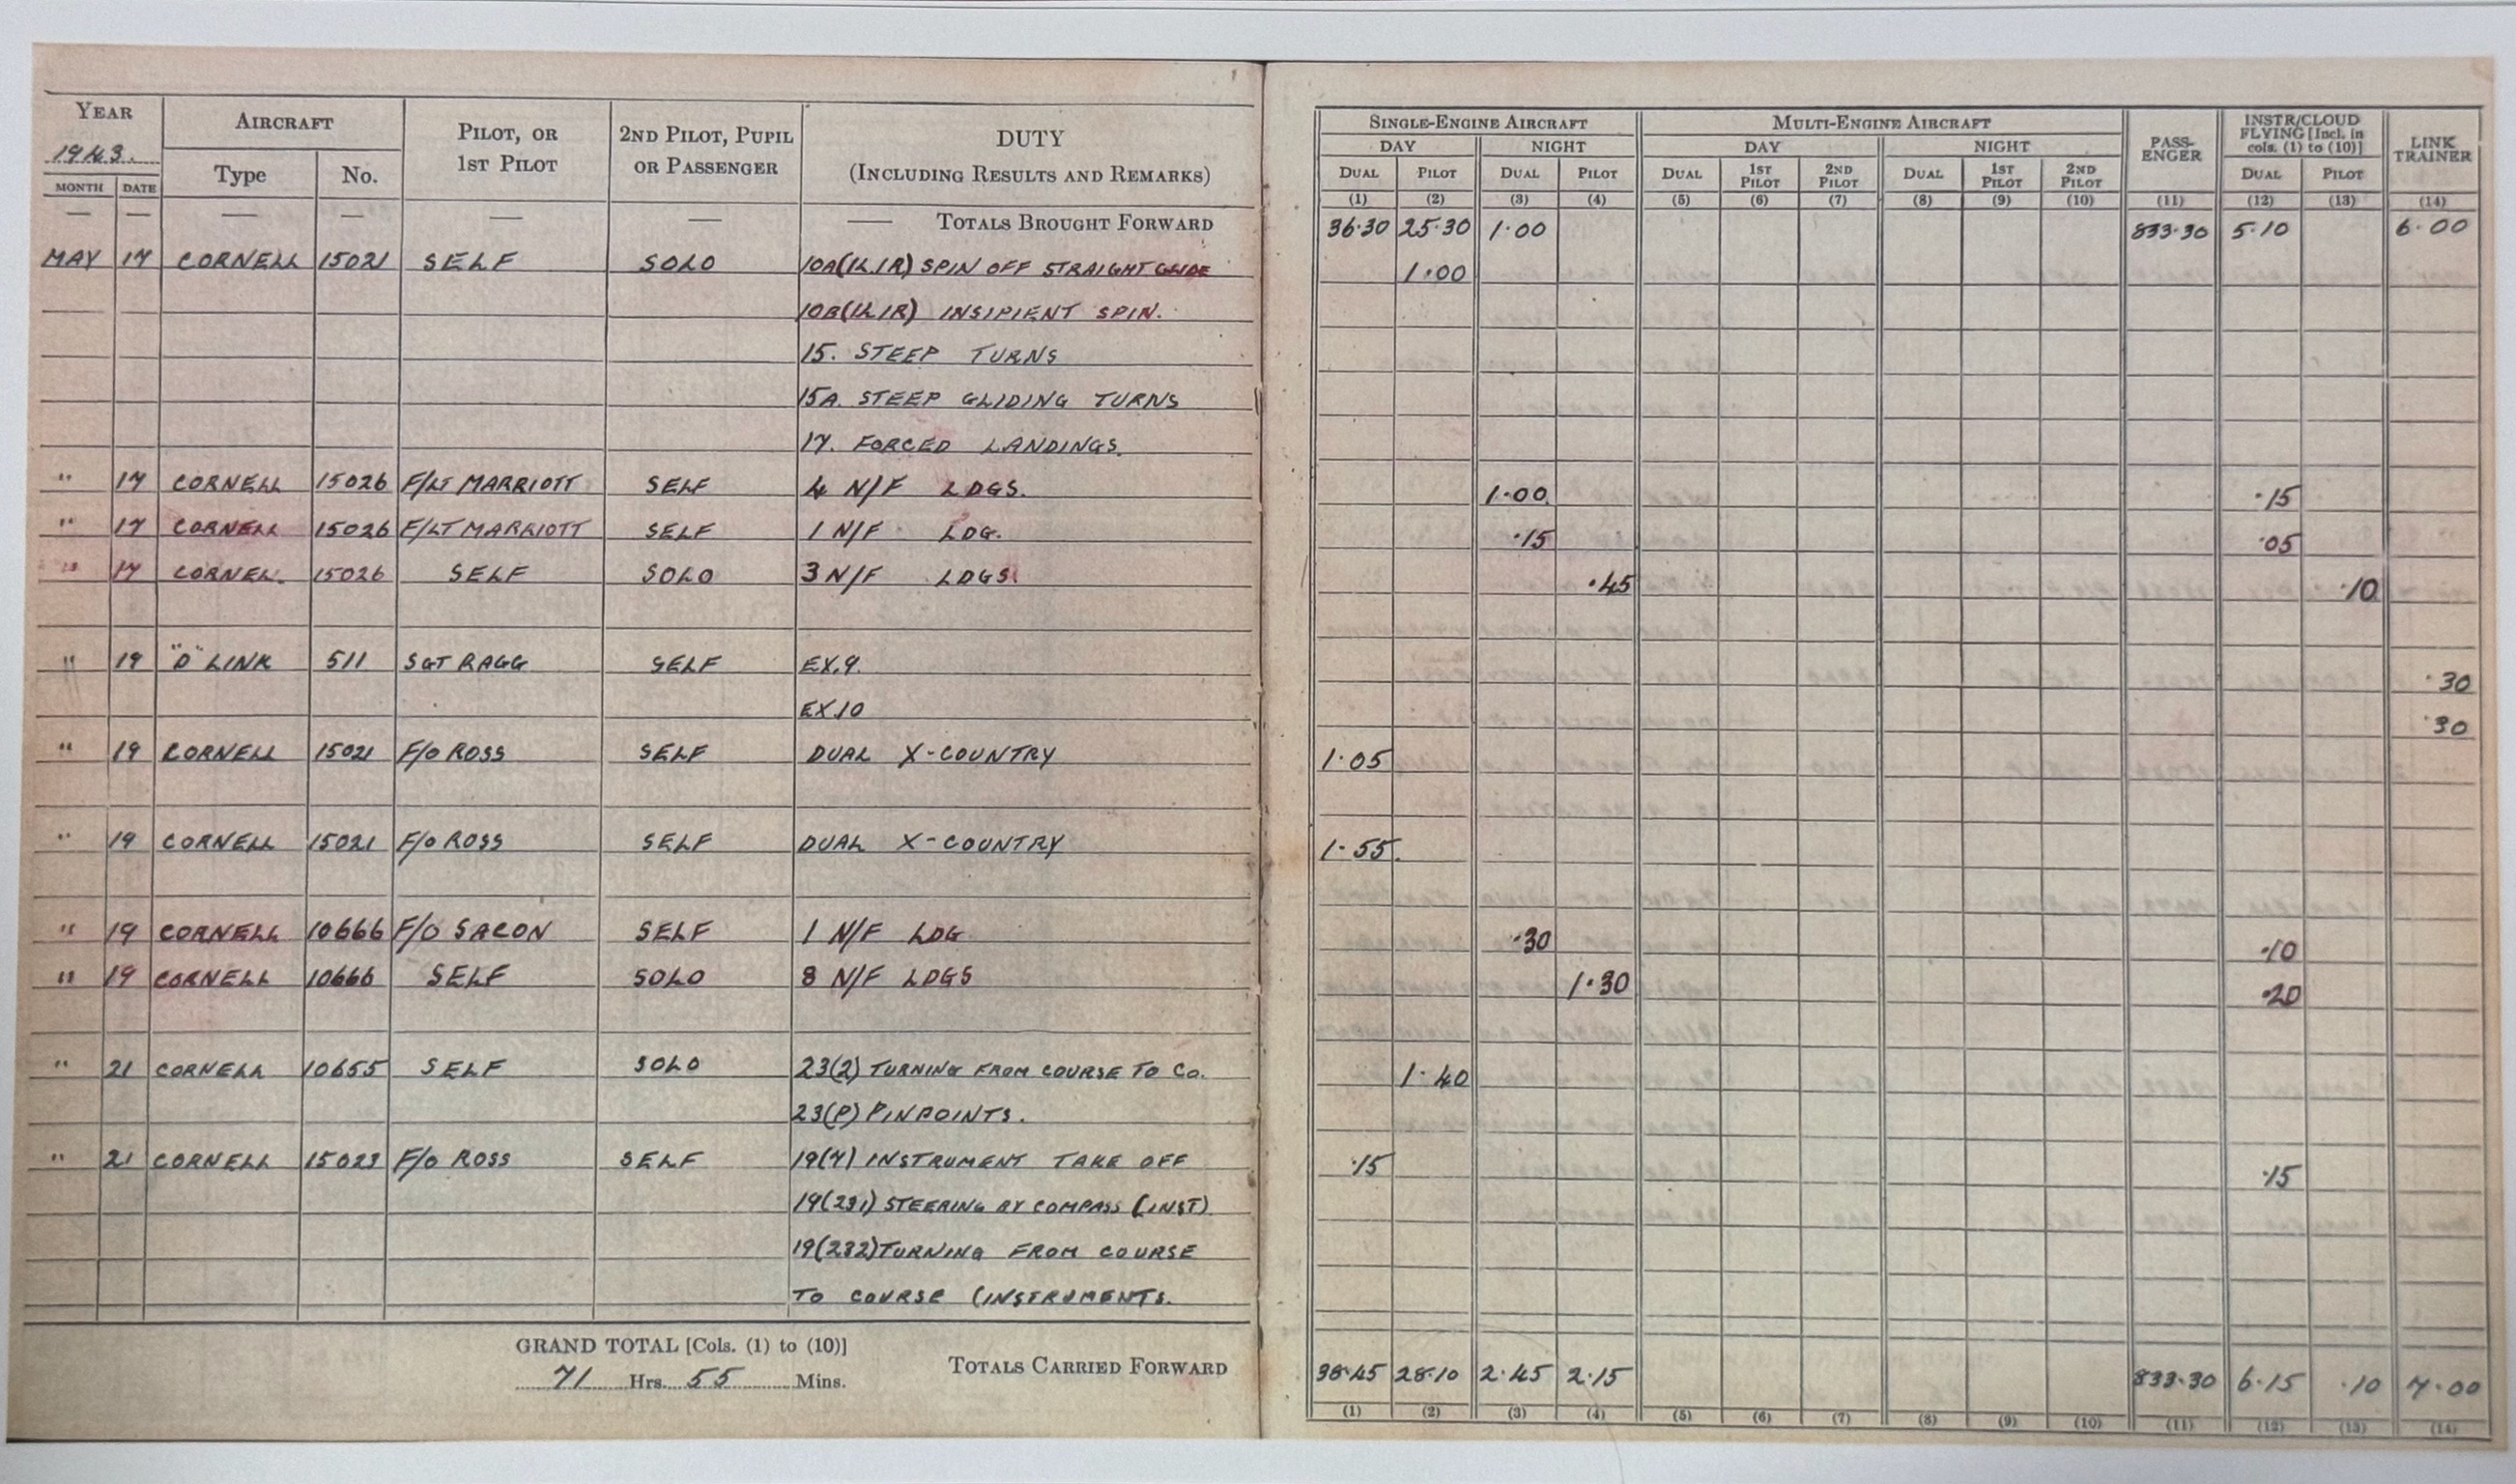 YEAR AIRCRAFT PILOT, OR 1ST PILOT 2ND PILOT, PUPIL OR PASSENGER DUTY (INCLUDING RESULTS AND REMARKS) SINGLE-ENGINE AIRCRAFT MULTI-ENGINE AIRCRAFT PASS-ENGER INSTR/CLOUD FLYING [Incl. in cols. (1) to (10)] LINK TRAINER
1943. Type No. DAY NIGHT DAY NIGHT
MONTH DATE DUAL PILOT DUAL PILOT DUAL 1ST PILOT 2ND PILOT DUAL 1ST PILOT 2ND PILOT DUAL PILOT
(1) (2) (3) (4) (5) (6) (7) (8) (9) (10) (11) (12) (13) (14)
— — — — — — — TOTALS BROUGHT FORWARD 36·30 25·30 1·00 833·30 5·10 6·00
MAY 17 CORNELL 15021 SELF SOLO 10A(1L1R) SPIN OFF STRAIGHT GLIDE 1·00
10B(1L1R) INSIPIENT SPIN.
15. STEEP TURNS
15A. STEEP GLIDING TURNS
17. FORCED LANDINGS.
" 17 CORNELL 15026 F/LT MARRIOTT SELF 4 N/F LDGS. 1·00 ·15
" 17 CORNELL 15026 F/LT MARRIOTT SELF 1 N/F LDG. ·15 ·05
" 17 CORNEL 15026 SELF SOLO 3 N/F LDGS. ·45 ·10
" 19 "D" LINK 511 SGT RAGG SELF EX.9. ·30
EX.10 ·30
" 19 CORNELL 15021 F/O ROSS SELF DUAL X-COUNTRY 1·05
" 19 CORNELL 15021 F/O ROSS SELF DUAL X-COUNTRY 1·55.
" 19 CORNELL 10666 F/O SACON SELF 1 N/F LDG ·30 ·10
" 19 CORNELL 10666 SELF SOLO 8 N/F LDGS 1·30 ·20
" 21 CORNELL 10655 SELF SOLO 23(2) TURNING FROM COURSE TO CO. 1·40
23(P) PINPOINTS.
" 21 CORNELL 15023 F/O ROSS SELF 19(7) INSTRUMENT TAKE OFF ·15 ·15
19(231) STEERING BY COMPASS (INST)
19(232) TURNING FROM COURSE
TO COURSE (INSTRUMENTS.
GRAND TOTAL [Cols. (1) to (10)]
71 Hrs. 55 Mins. TOTALS CARRIED FORWARD 38·45 28·10 2·45 2·15 833·30 6·15 ·10 7·00
(1) (2) (3) (4) (5) (6) (7) (8) (9) (10) (11) (12) (13) (14)